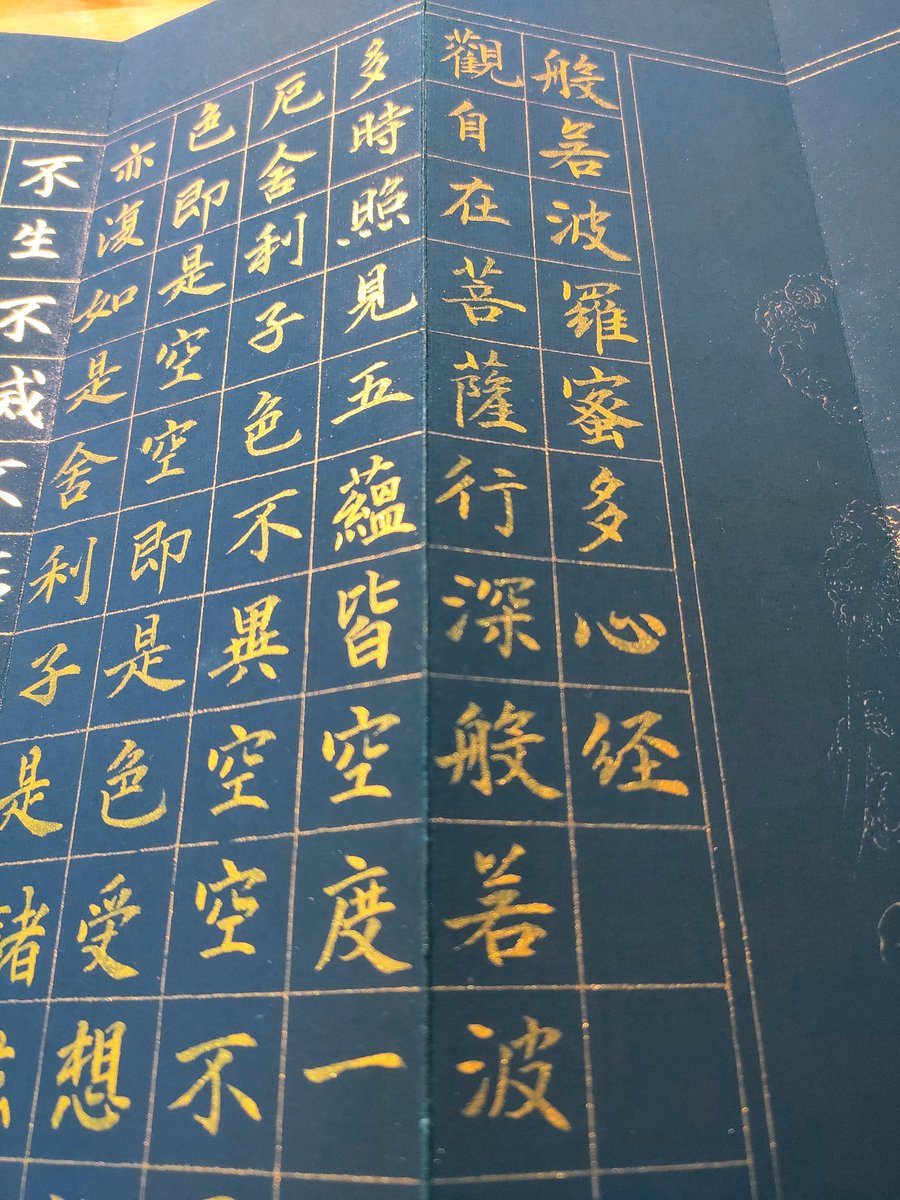 般若波羅蜜多心经
觀自在菩薩行深般若波
多時照見五蘊皆空度一
厄舍利子色不異空空不
色即是空空即是色受想
亦復如是舍利子是諸
不生不滅不